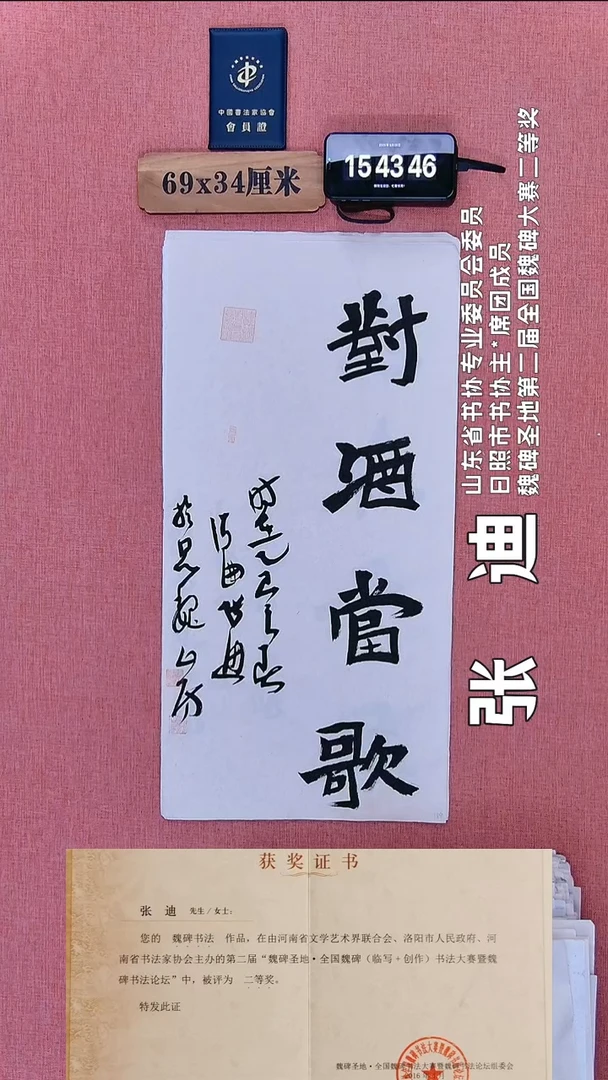 中國書法家協會
會員證
69x34厘米
15 43 46
對酒當歌
山东省书协专业委员会委员
日照市书协主*席团成员
魏碑圣地第二届全国魏碑大赛二等奖
张 迪
获奖证书
张 迪 先生/女士:
您的 魏碑书法 作品，在由河南省文学艺术界联合会、洛阳市人民政府、河
南省书法家协会主办的第二届“魏碑圣地·全国魏碑（临写+创作）书法大赛暨魏
碑书法论坛”中，被评为 二等奖。
特发此证
魏碑圣地·全国魏碑书法大赛暨魏碑书法论坛组委会